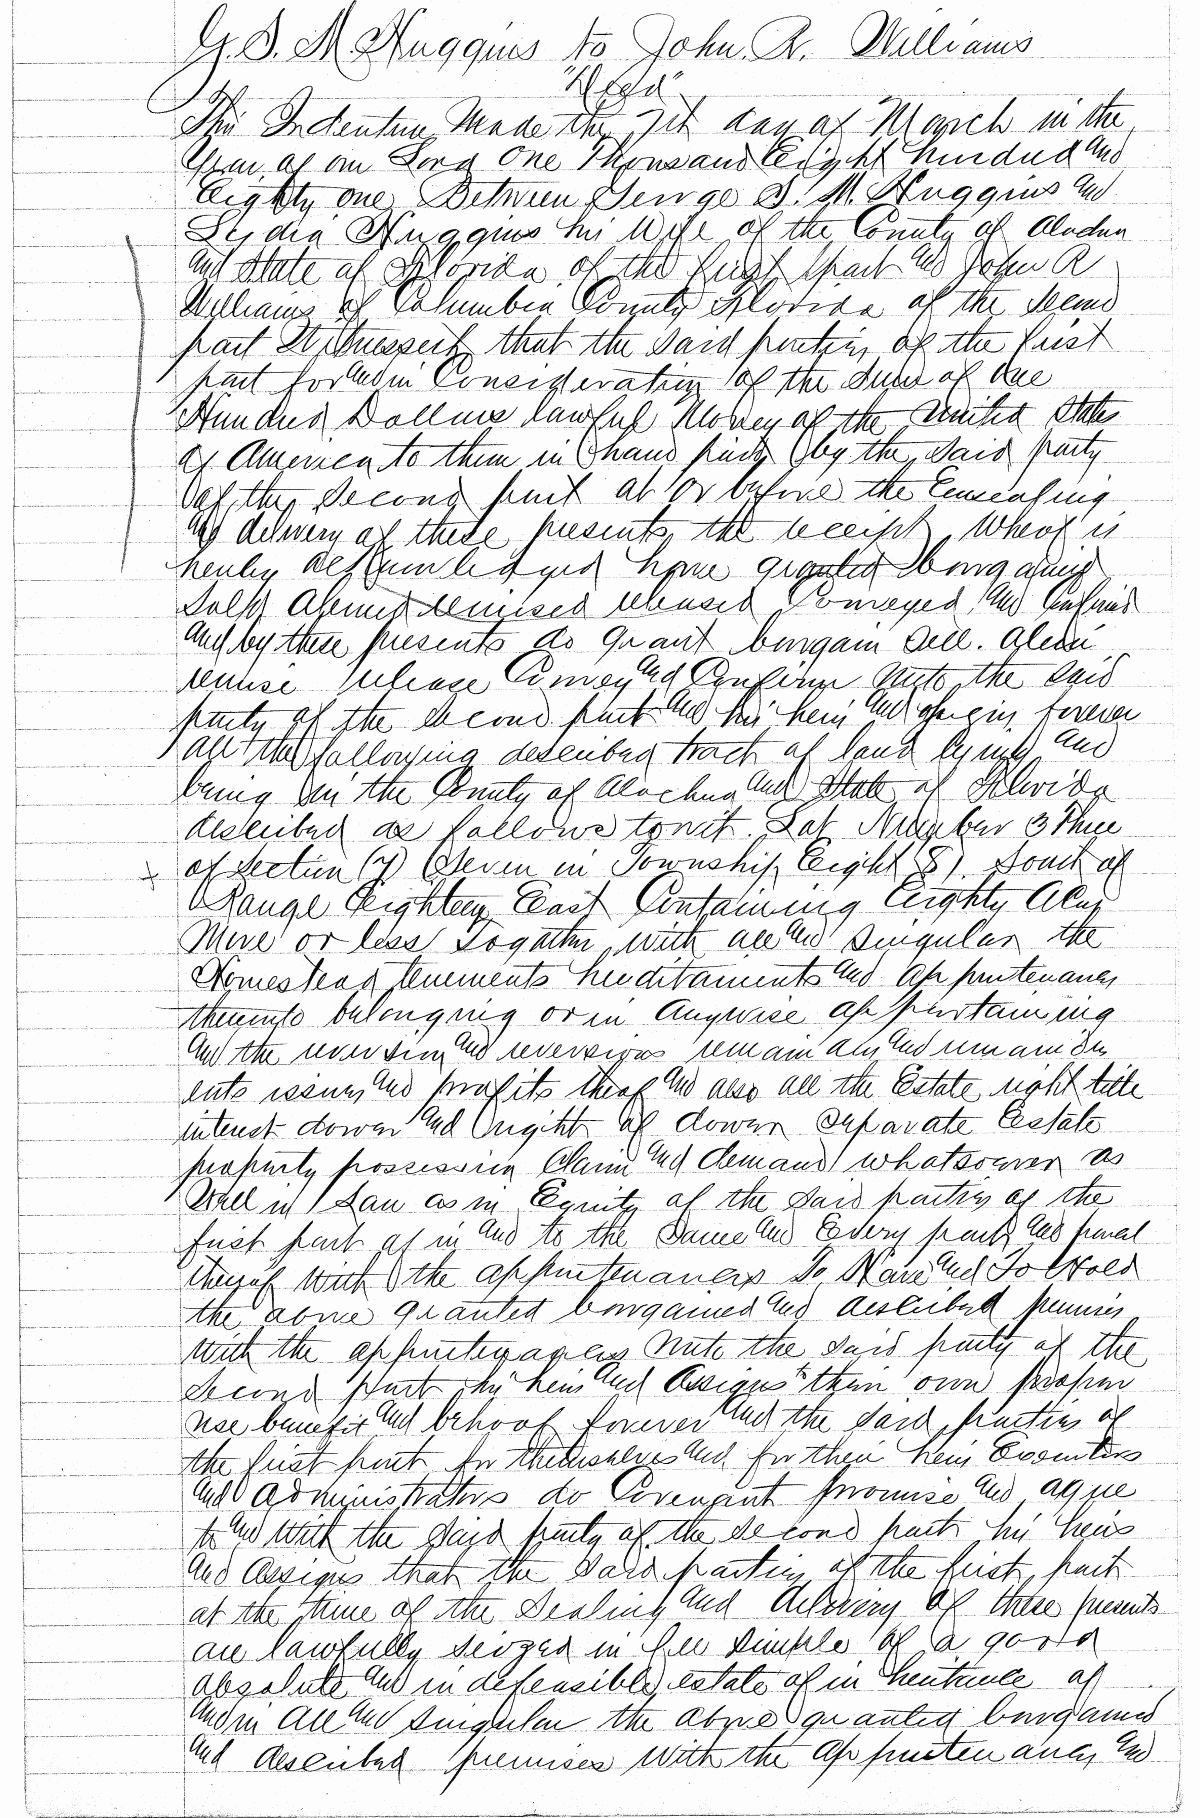 G. S. M. Huggins to John. R. Williams
"Deed"
This Indenture Made the 7th day of March in the
Year of our Lord One Thousand Eight hundred and
Eighty one Between George S. M. Huggins and
Lydia Huggins his Wife of the County of Alachua
and State of Florida of the first part and John R
Williams of Columbia County Florida of the Second
part Witnesseth that the said parties of the first
part for and in Consideration of the sum of One
Hundred Dollars lawful Money of the United States
of America to them in hand paid by the said party
of the second part at or before the Ensealing
and delivery of these presents the receipt Wheof is
hereby acknowledged have granted bargained
sold Aliened remised released Conveyed and Confirmed
and by these presents do grant bargain sell. alien
remise release Convey and Confirm Unto the said
party of the second part and his heirs and assigns forever
all the following described tract of land lying and
being in the County of Alachua and State of Florida
described as follows towit. Lot Number 3 Three
of section (7) Seven in Township Eight 8) South of
Range Eighteen East Containing Eighty Acres
More or less Together with all and singular the
Homestead tenements hereditaments and appurtenances
thereunto belonging or in Anywise appertaining
and the reversion and reversions remainder and remainders
rents issues and profits theof and also all the Estate right title
interest dower and right of dower separate Estate
property possession Claim and demand whatsoever as
Well in Law as in Equity of the said parties of the
first part of in and to the Same and Every part and parcel
thereof With the appurtenances To Have and To Hold
the above granted bargained and described premises
With the appurtenances Unto the said party of the
second part his heirs and Assigns to their own proper
use benefit and behoof forever and the said parties of
the first part for themselves and for their heirs Executors
and Administrators do Covenant promise and agree
to and With the said party of the second part his heirs
and Assigns that the said parties of the first part
at the time of the Sealing and delivery of these presents
are lawfully seized in fee simple of a good
absolute and indefeasible estate of inheritance of
and in all and singular the above granted bargained
and described premises With the appurtenances and